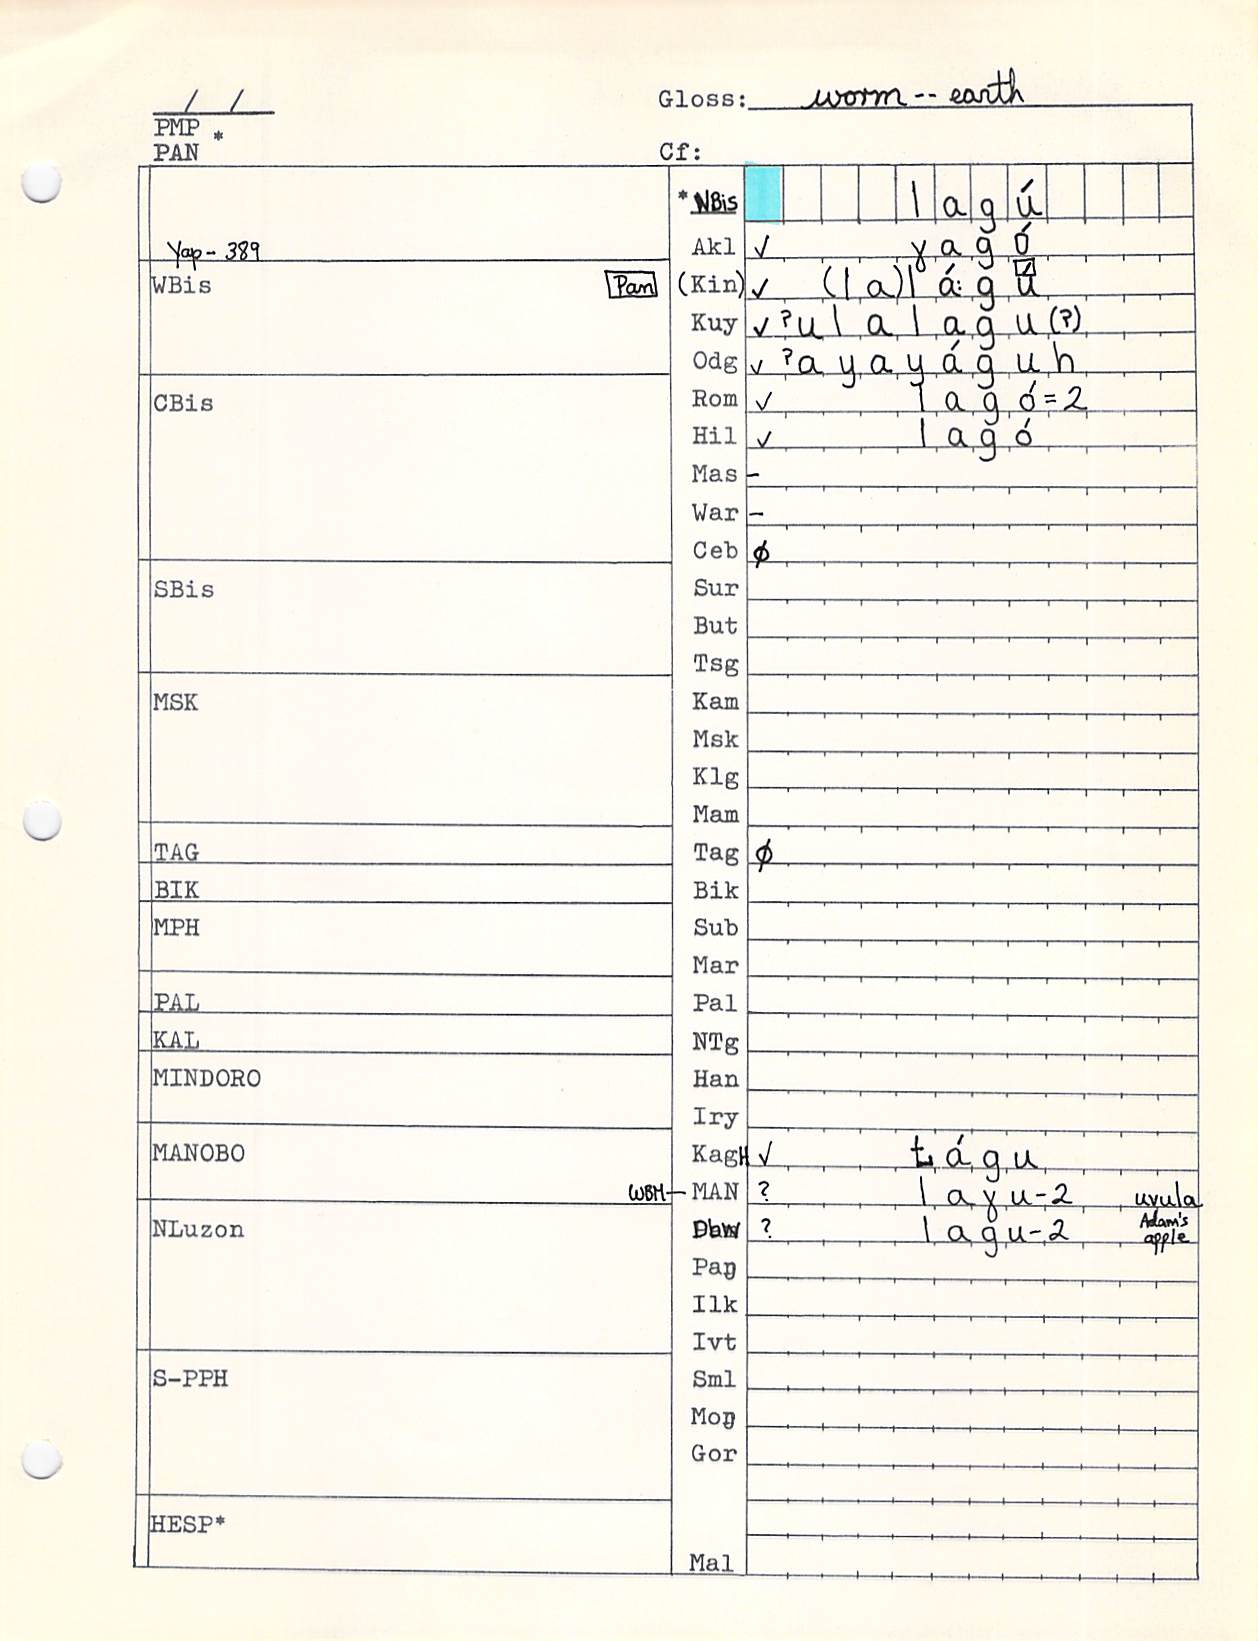 / /
Gloss: worm -- earth
PMP *
PAN
Cf:
*NBis lagú
Yap - 389
Akl ✓ ɣagó
WBis
Pan (Kin) ✓ (la)lá:gú
Kuy ✓ ?ulalagu(?)
Odg ✓ ?ayayáguh
CBis
Rom ✓ lagó=2
Hil ✓ lagó
Mas -
War -
Ceb ∅
SBis
Sur
But
Tsg
MSK
Kam
Msk
Klg
Mam
TAG
Tag ∅
BIK
Bik
MPH
Sub
Mar
PAL
Pal
KAL
NTg
MINDORO
Han
Iry
MANOBO
KagH ✓ tágu
WBM - MAN ? laɣu-2 uvula
NLuzon
? lagu-2 Adam's apple
Paŋ
Ilk
Ivt
S-PPH
Sml
Moŋ
Gor
HESP*
Mal